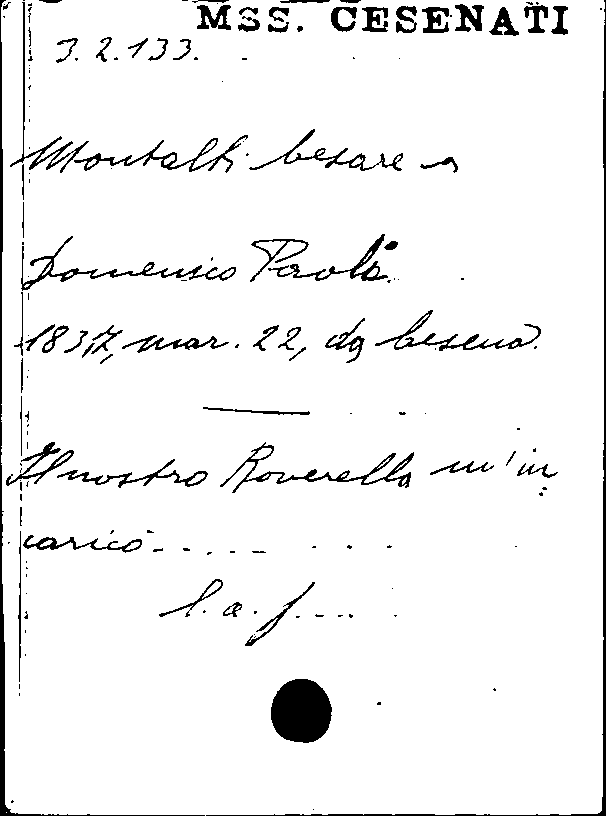 MSS. CESENATI
3.2.133.
Montalti Cesare a
Domenico Paoli.
1837, mar. 22, da Cesena.
Il nostro Roverella m'in
caricò.....
l. a. f....